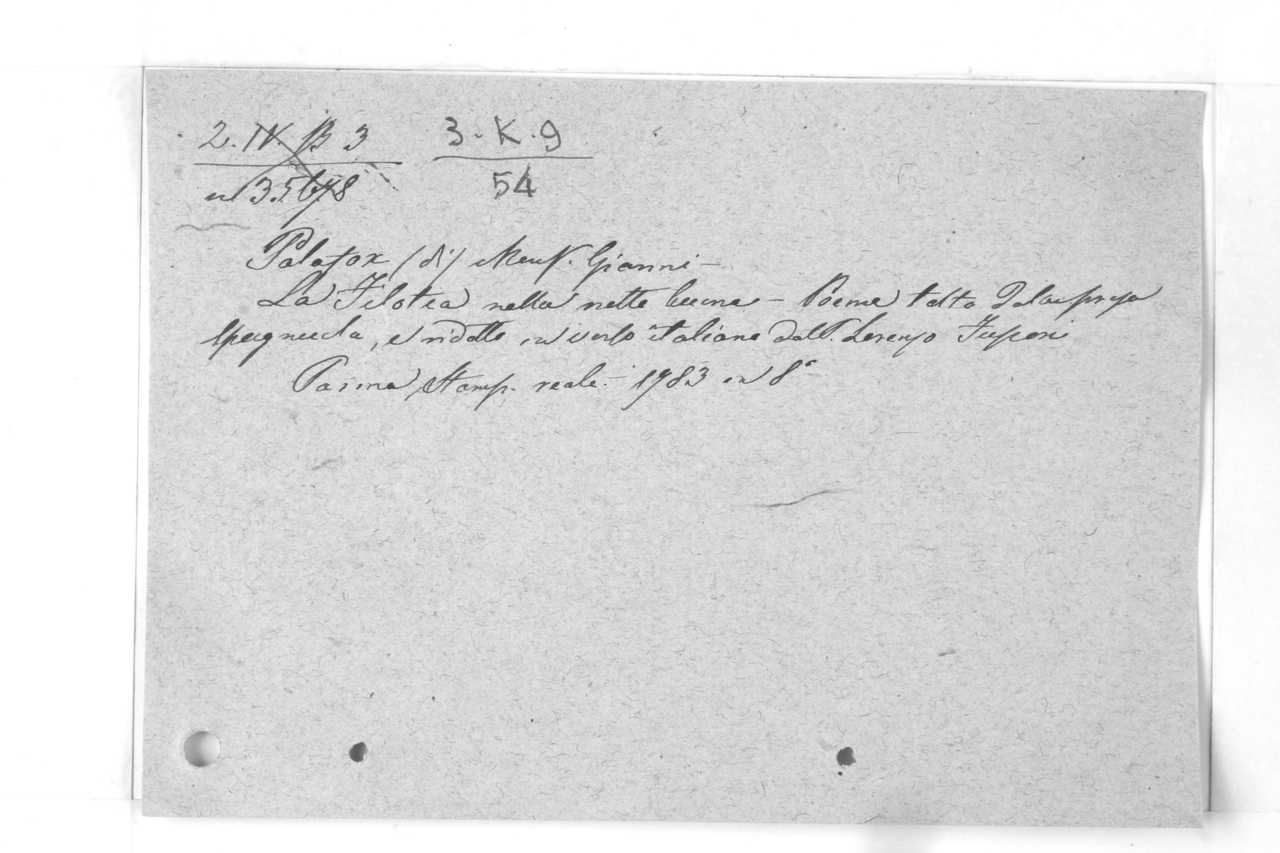 2. IV. B 3 3. K. 9
n 35678 54
Palafox (di) Gianni –
La Filotea nella notte buona – Poema tolto dalla prosa
spagnuola, e ridotto in verso italiano dal P. Lorenzo Fusconi
Parma Stamp. reale – 1783 in 8°